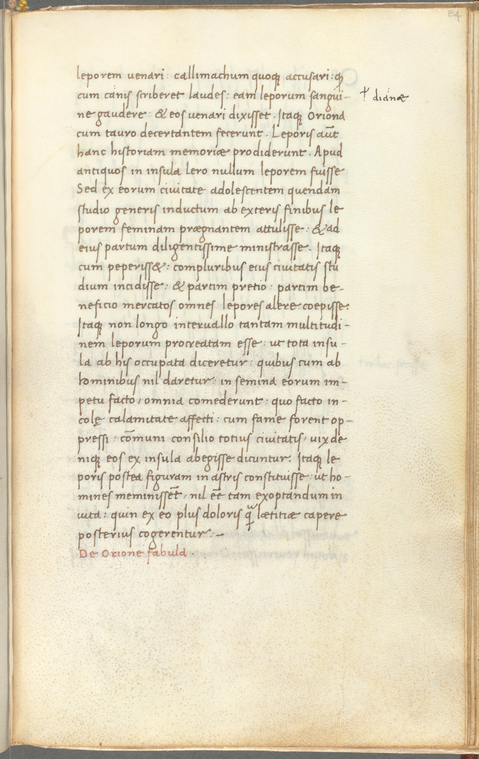 54
leporem venari: callimachum quoq; accusari: q
cum canis scriberet laudes: eam leporum sangui-
ne gaudere: & eos venari dixisset. Itaq; Oriona
† dianæ
cum tauro decertantem fecerunt. Leporis aut
hanc historiam memoriæ prodiderunt. Apud
antiquos in insula lero nullum leporem fuisse
Sed ex eorum civitate adolescentem quendam
studio generis inductum ab exteris finibus le
porem feminam prægnantem attulisse: & ad
eius partum diligentissime ministrasse. Itaq;
cum peperisset: compluribus eius civitatis stu
dium incidisse: & partim pretio: partim be-
neficio mercatos omnes lepores alere coepisse.
Itaq; non longo intervallo tantam multitudi-
nem leporum procreatam esse: ut tota insu-
la ab his occupata diceretur: quibus cum ab
hominibus nil daretur: in semina eorum im-
petu facto: omnia comederunt: quo facto in-
colę calamitate affecti: cum fame forent op-
pressi: cōmuni consilio totius civitatis: vix de
niq; eos ex insula abegisse dicuntur. Itaq; le
poris postea figuram in astris constituisse: ut ho-
mines meminissēt: nil eē tam exoptandum in
vita: quin ex eo plus doloris q̄ lætitiæ capere
posterius cogerentur: ~
De Orione fabula.